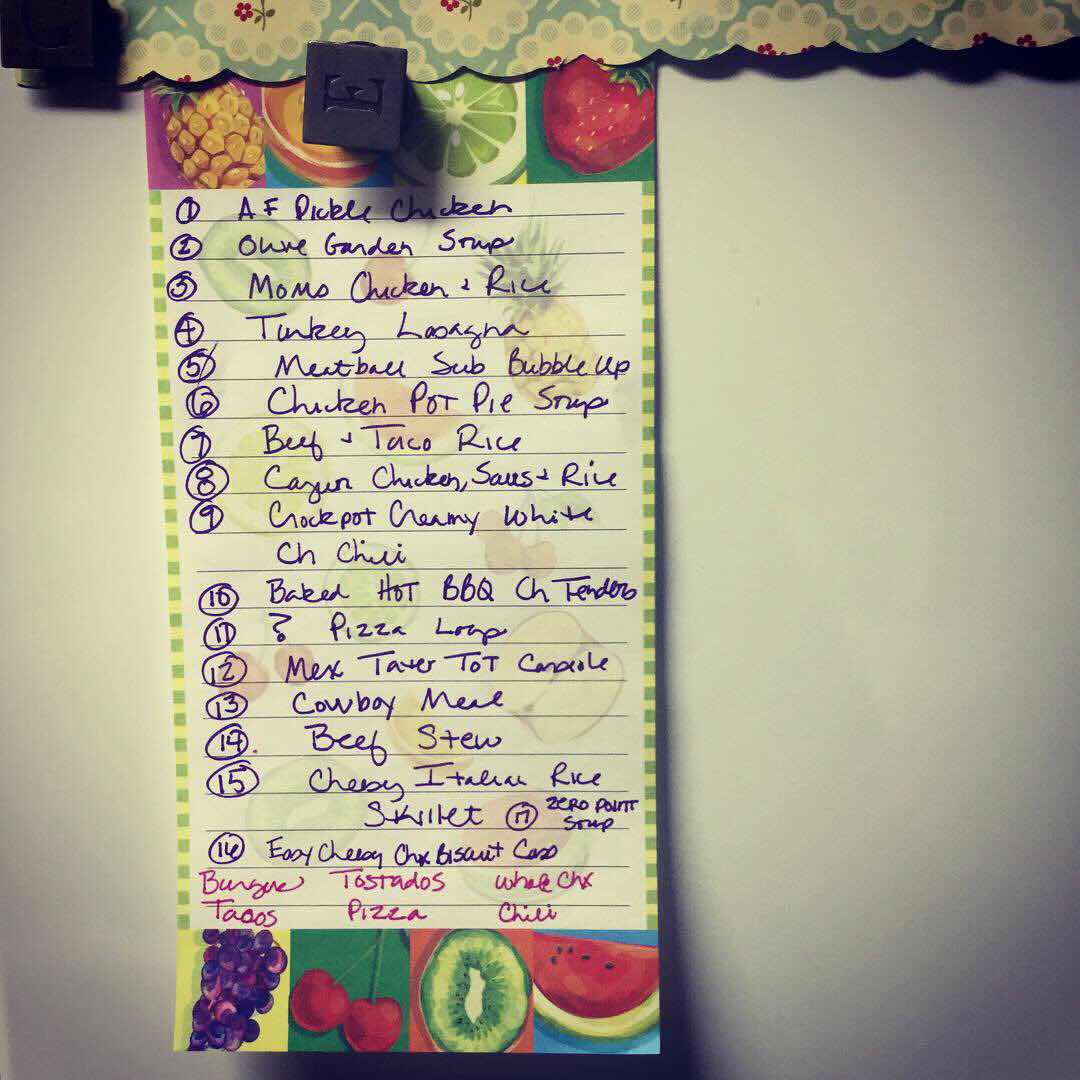 E
① AF Pickle Chicken
② Olive Garden Soup
③ Moms Chicken + Rice
④ Turkey Lasagna
⑤ Meatball Sub Bubble Up
⑥ Chicken Pot Pie Soup
⑦ Beef + Taco Rice
⑧ Cajun Chicken, Saus + Rice
⑨ Crockpot Creamy White
Ch Chili
⑩ Baked Hot BBQ Ch Tenders
⑪ ? Pizza Loaf
⑫ Mex Tater Tot Casserole
⑬ Cowboy Meal
⑭ Beef Stew
⑮ Cheesy Italian Rice
Skillet ⑰ Zero Point Soup
⑯ Easy Cheesy Chx Biscuit Cass
Burgers Tostados Whole Chx
Tacos Pizza Chili